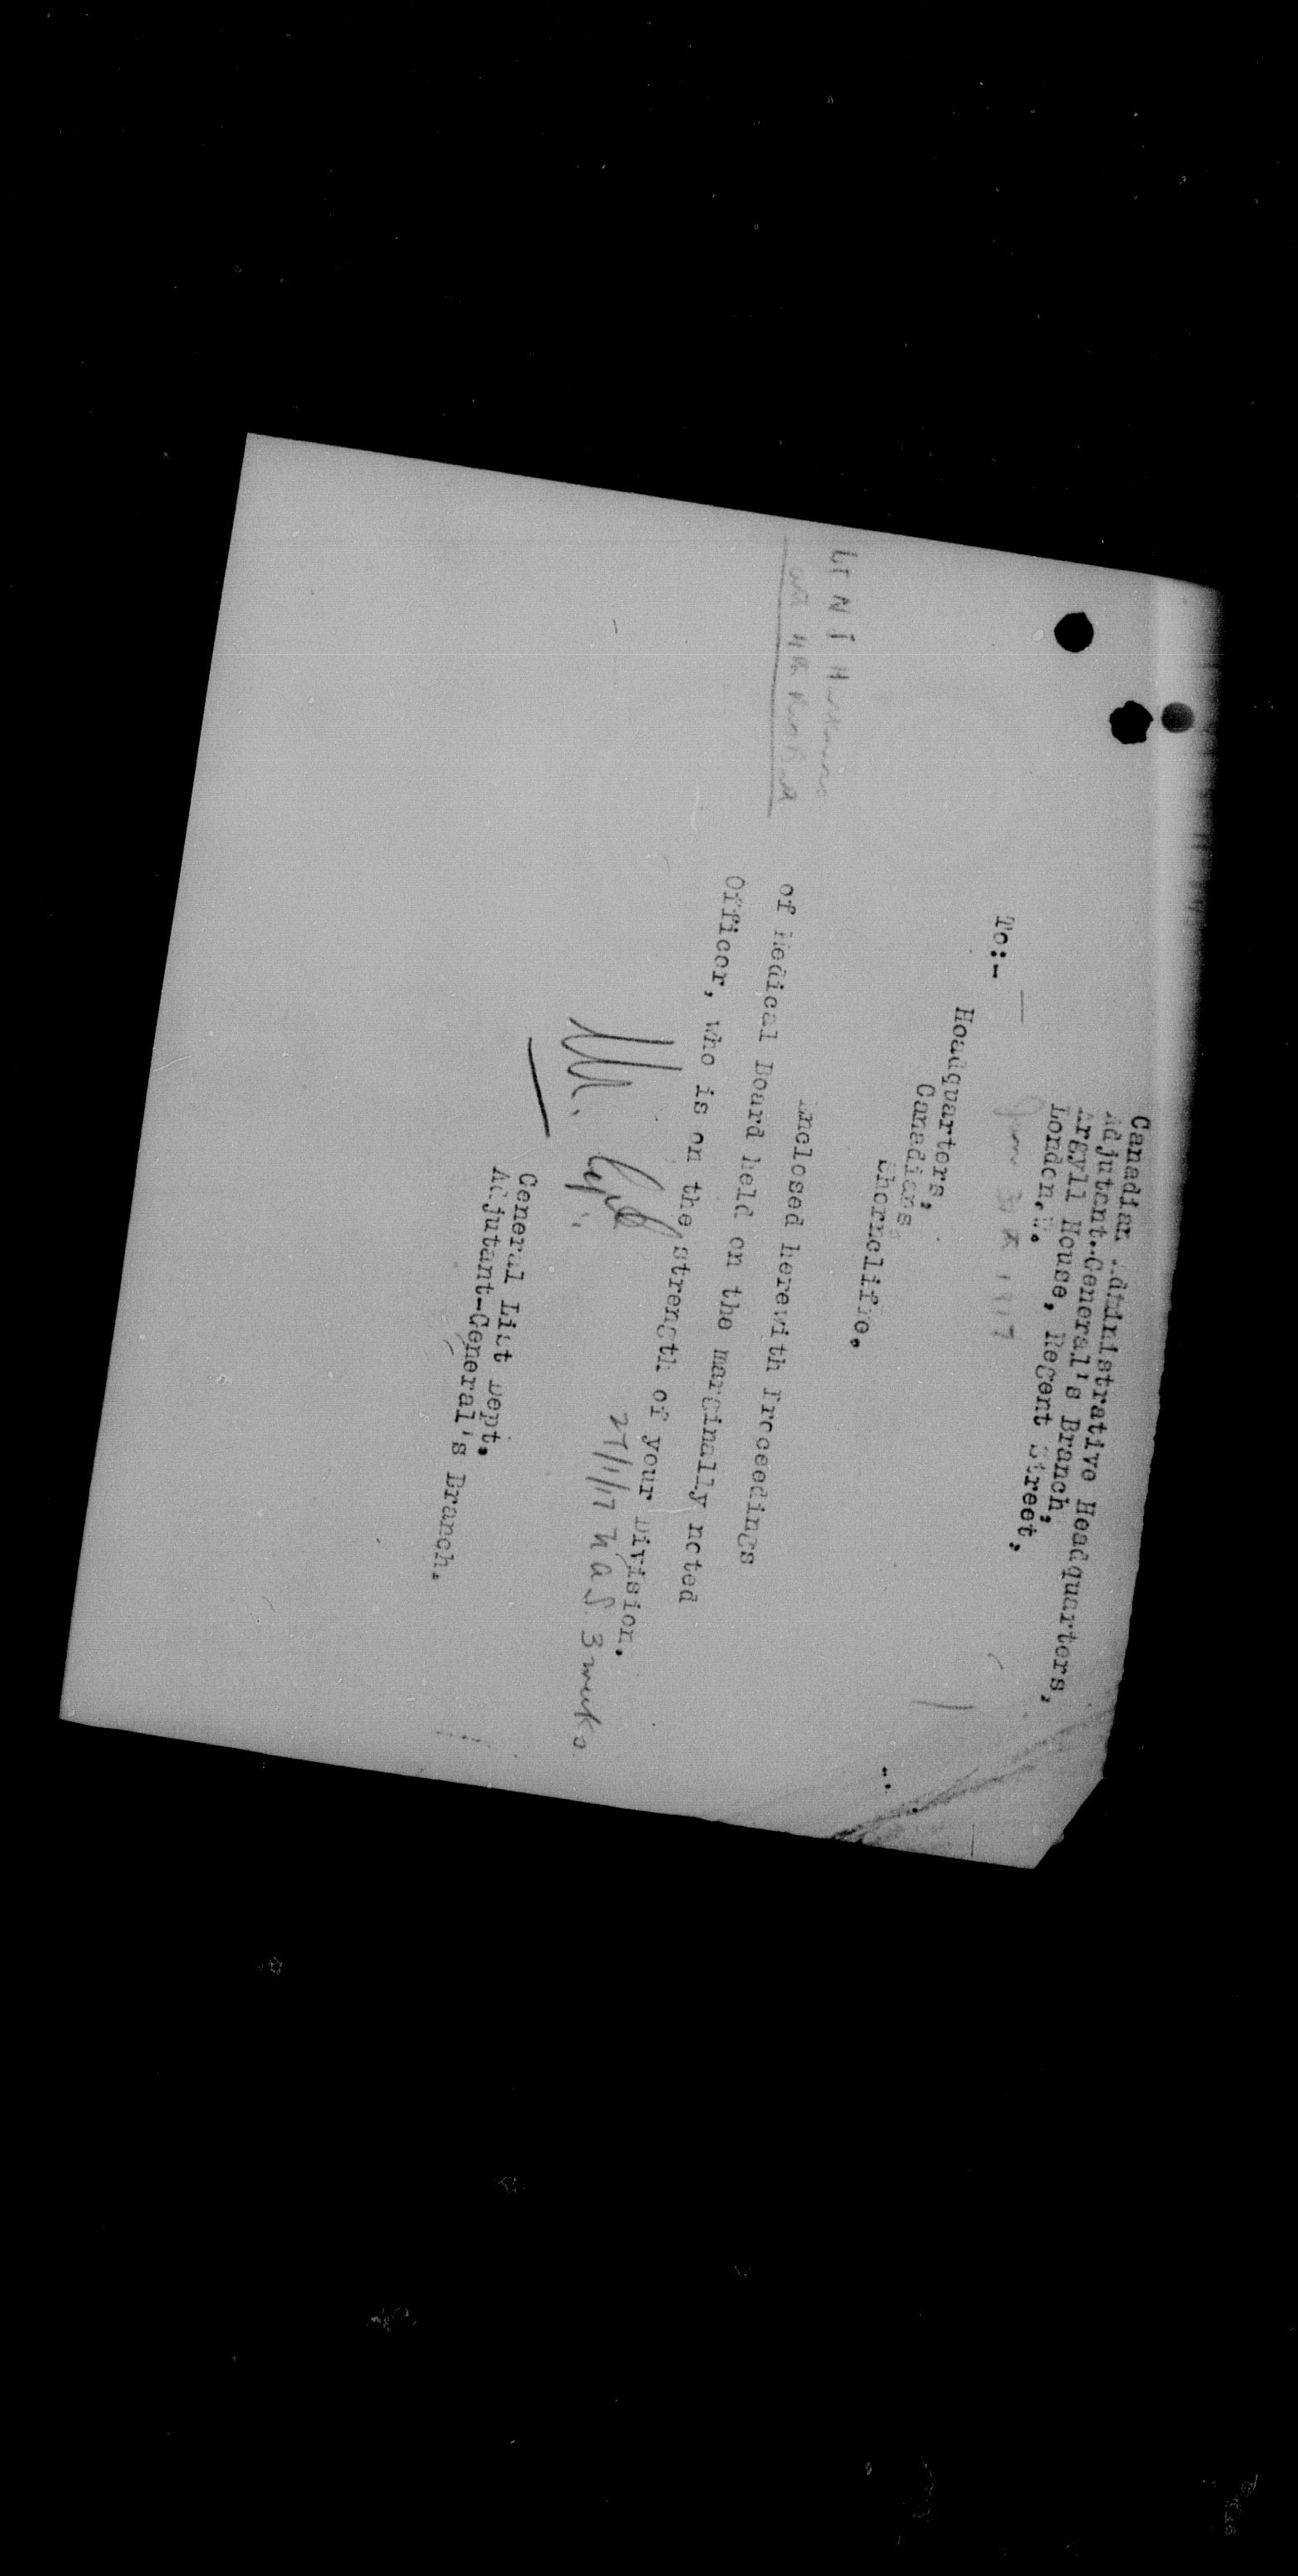 Canadian Administrative Headquarters,
Adjutant-General's Branch,
Argyll House, Regent Street,
London, W.
Jan 1917
To:-
Headquarters,
Canadians,
Shorncliffe.
Enclosed herewith Proceedings
of Medical Board held on the marginally noted
Officer, who is on the strength of your Division.
Lt N J
4th Res Batt
27/1/17 3 weeks.
General List Dept.
Adjutant-General's Branch.